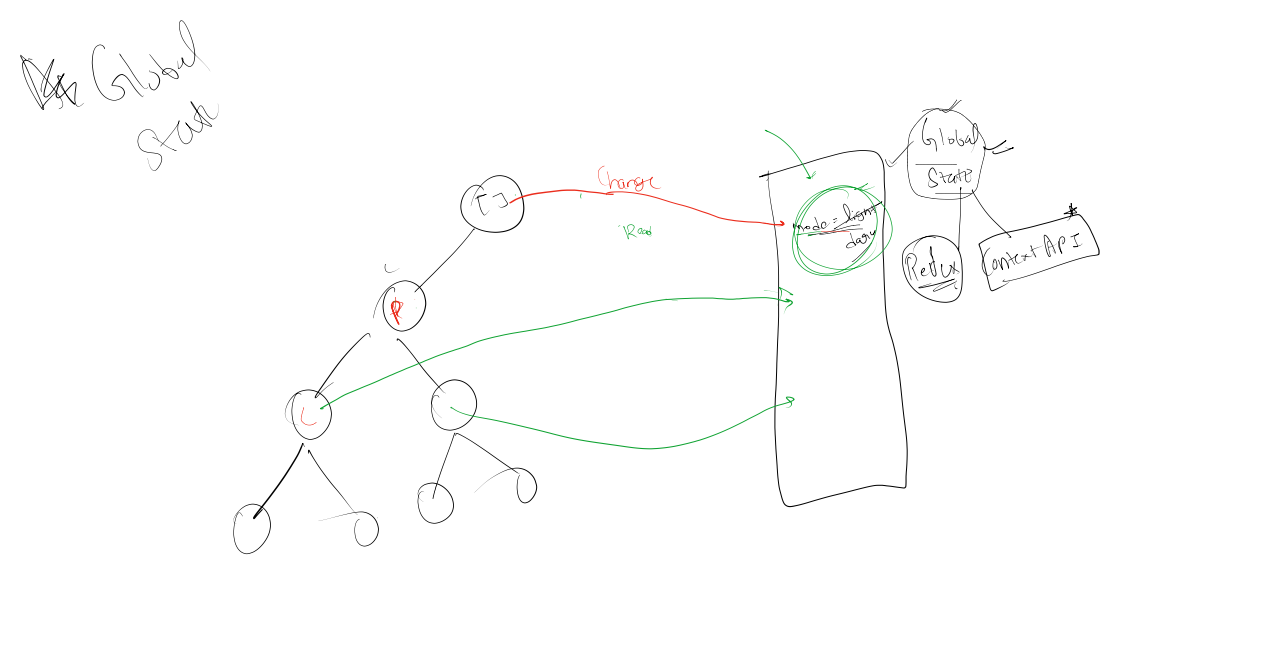 Global
State
Change
Read
[ ]
mode = light
dark
P
C
Global
State
Redux
Context API